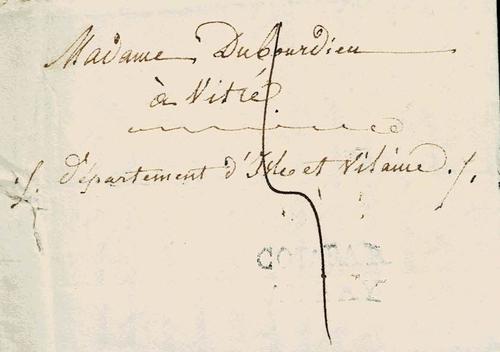 Madame Dubourdieu
à Vitré
département d'Isle et Vilaine ./.